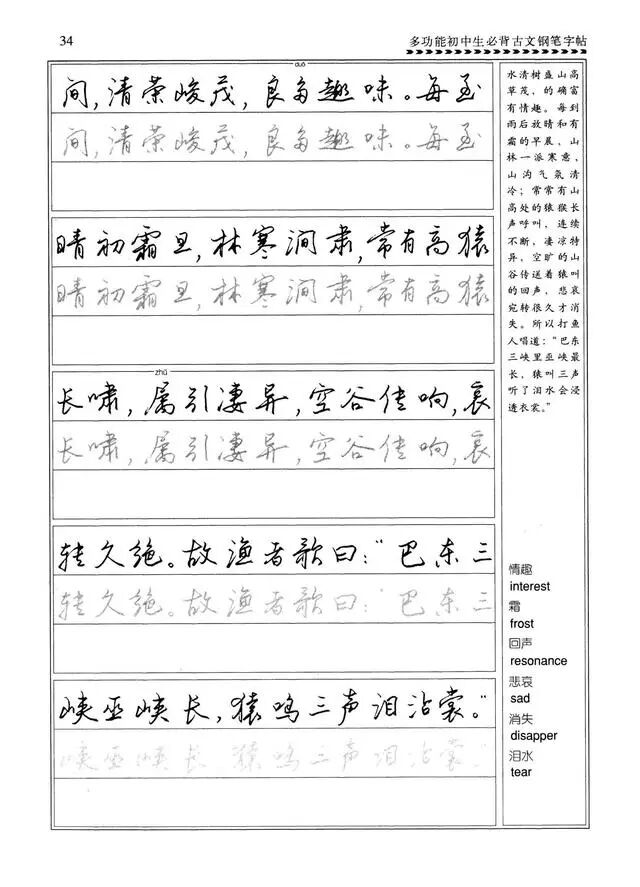 34
多功能初中生必背古文钢笔字帖
duō
间，清荣峻茂，良多趣味。每至
间，清荣峻茂，良多趣味。每至
晴初霜旦，林寒涧肃，常有高猿
晴初霜旦，林寒涧肃，常有高猿
zhǔ
长啸，属引凄异，空谷传响，哀
长啸，属引凄异，空谷传响，哀
转久绝。故渔者歌曰：“巴东三
转久绝。故渔者歌曰：“巴东三
峡巫峡长，猿鸣三声泪沾裳。”
峡巫峡长，猿鸣三声泪沾裳。”
水清树盛山高
草茂，的确富
有情趣。每到
雨后放晴和有
霜的早晨，山
林一派寒意，
山沟气氛清
冷；常常有山
高处的猿猴长
声呼叫，连续
不断，凄凉特
异，空旷的山
谷传送着猿叫
的回声，悲哀
宛转很久才消
失。所以打鱼
人唱道：“巴东
三峡里巫峡最
长，猿叫三声
听了泪水会浸
透衣裳。”
情趣
interest
霜
frost
回声
resonance
悲哀
sad
消失
disapper
泪水
tear